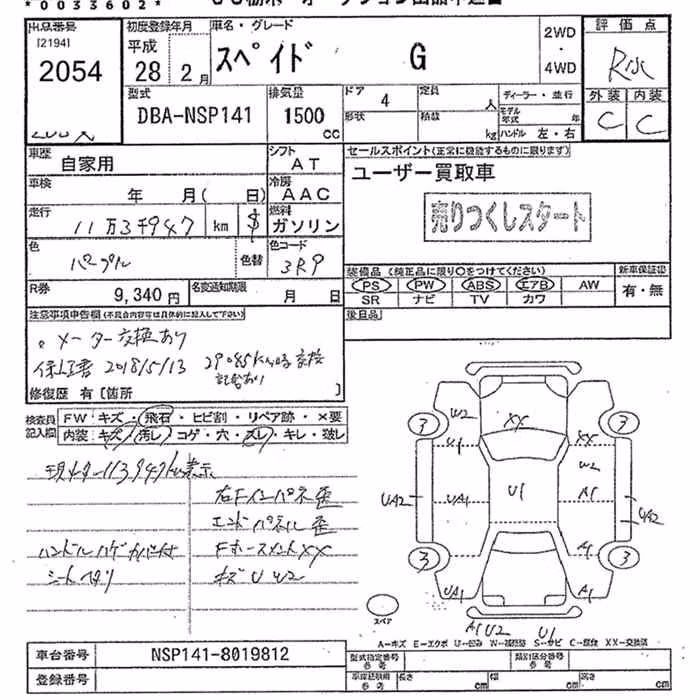 *0033602*
出品番号
[2194]
2054
初度登録年月
平成
28年 2月
車名・グレード
スペイド G
2WD
・
4WD
評価点
外装 内装
C C
型式
DBA-NSP141
排気量
1500
cc
ドア 4
形状
定員 人
積載 kg
ディーラー・並行
モデル年式 年
ハンドル 左・右
車歴
自家用
シフト
AT
車検
年 月( 日)
冷房
AAC
走行
11万3千947 km $
燃料
ガソリン
色
パープル
色替
色コード
3R9
R券
9,340 円
名変通知期限
月 日
セールスポイント(正常に機能するものに限ります)
ユーザー買取車
売りつくしスタート
装備品(純正品に限り○をつけてください)
PS PW ABS エアB AW
SR ナビ TV カワ
新車保証書
有・無
後日品
注意事項申告欄(不具合内容等は具体的に記入して下さい)
メーター交換あり
保証書 2018/5/13 29085km時交換
記載あり
修復歴 有 [箇所 ]
検査員記入欄
FW:キズ・飛石・ヒビ割・リペア跡・×要
内装:キズ・汚レ・コゲ・穴・スレ・キレ・破レ
現メーター113947km表示
右Fインパネ歪
エンドパネル歪
ハンドルハゲカバー付
FホースメントXX
シートヘタリ
キズU W2
3 W2 XX 3
U1 XX
W2
UA2 UA1 U1 A1 UA2
3 A1 3
UA1 A1
スペア
A1 U2 U1
A-キズ E-エクボ U-凹み W-補修跡 S-サビ C-腐食 XX-交換済
車台番号
NSP141-8019812
登録番号
型式指定番号
参考
類別区分番号
参考
車庫証明用
参考
長さ cm
幅 cm
高さ cm